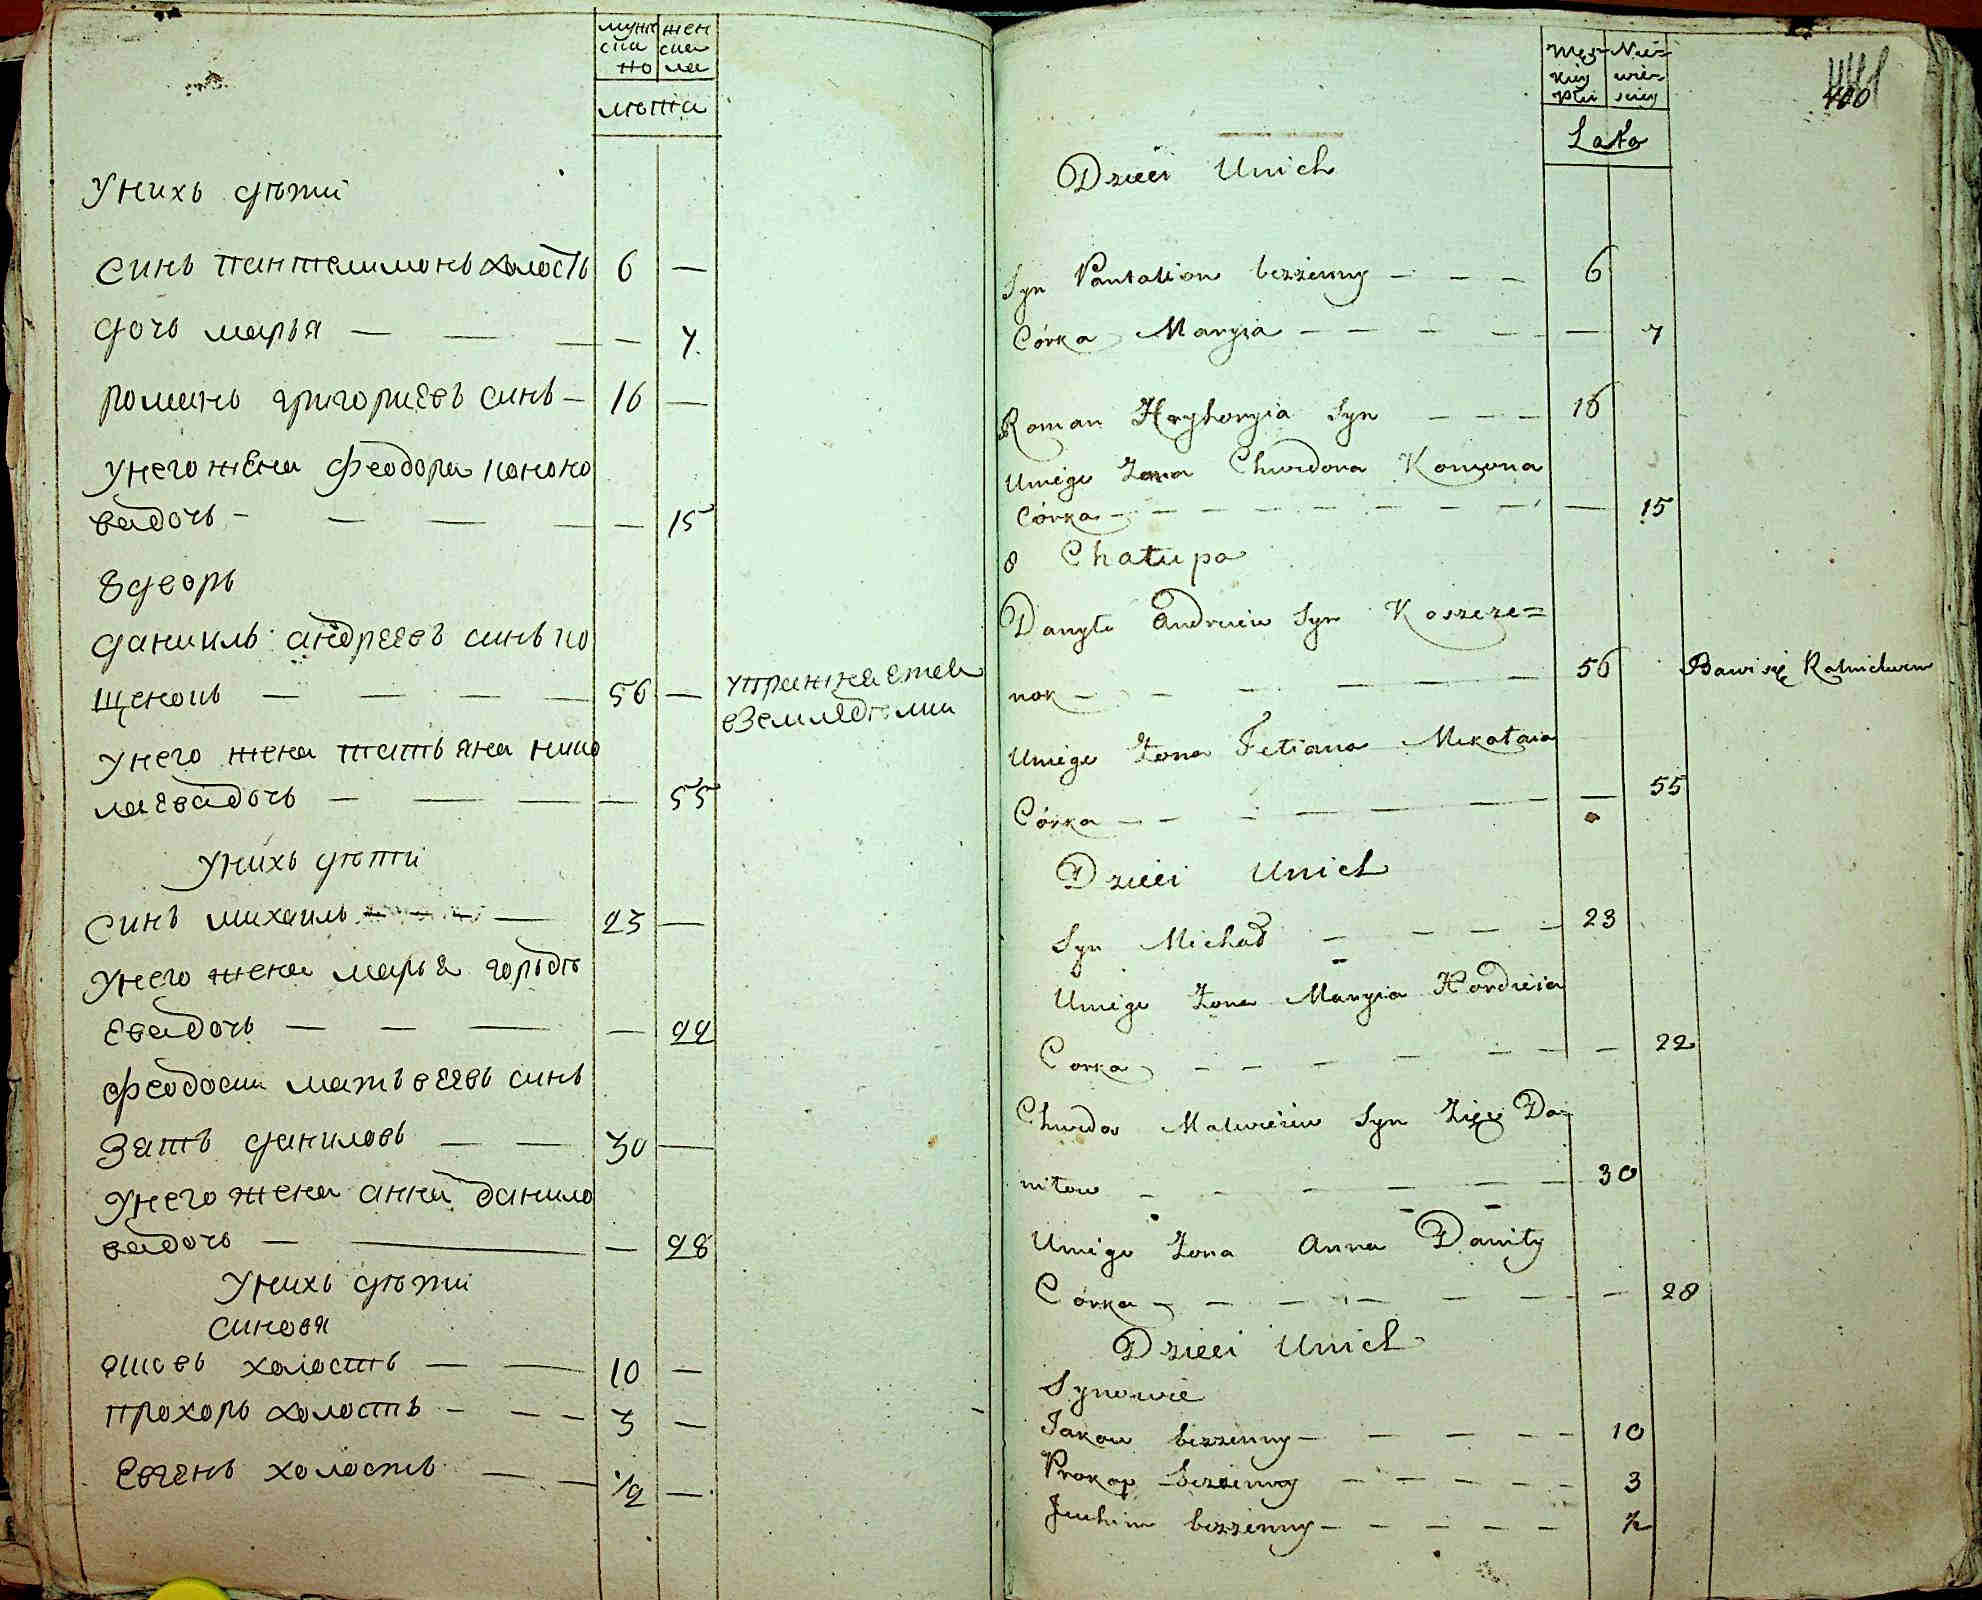 мужеска женска
по ла
лѣта
Унихъ дѣти
синъ пантелимонъ холостъ 6 —
дочь марья — — — — 7
романъ григориевъ синъ — 16 —
Унего жена феодора кононо
ва дочь — — — — — 15
8 дворъ
даниилъ андреевъ синъ ко
щенокъ — — — — 56 — упражняется
в земледелии
Унего жена татьяна нико
лаева дочь — — — — 55
Унихъ дѣти
синъ михаилъ — 23 —
Унего жена марья гордѣ
ева дочь — — — — 22
феодосий матвеевъ синъ
зять даниловъ — — 30 —
Унего жена анна данило
ва дочь — — — 28
Унихъ дѣти
синовя
яковъ холостъ — — 10 —
прохоръ холостъ — — — 3 —
Евгенъ холостъ — — 1/2 —
Męz- Nie-
kiey wie-
płci sciey
Lata
Dzieci Unich
Syn Pantalion bezżenny — — — 6
Córka Maryia — — — — — — 7
Roman Hryhoryia Syn — — — 16
Uniego Zona Chwedora Konona
Córka — — — — — — — — — 15
8 Chałupa
Danyło Andreiew Syn Koszcze=
nok — — — — — — 56 Bawi się Rolnictwem
Uniego Zona Tetiana Mikołaia
Córka — — — — — — — 55
Dzieci Unich
Syn Michał — — — — 23
Uniego Zona Maryia Hordieia
Corka — — — — — — — 22
Chwedor Matwieiew Syn Zięć Da-
niłow — — — — — — 30
Uniego Zona Anna Daniły
Córka — — — — — — — 28
Dzieci Unich
Synowie
Jakow bezżenny — — — — — 10
Prokop bezżenny — — — — — 3
Juchim bezżenny — — — — — 1/2